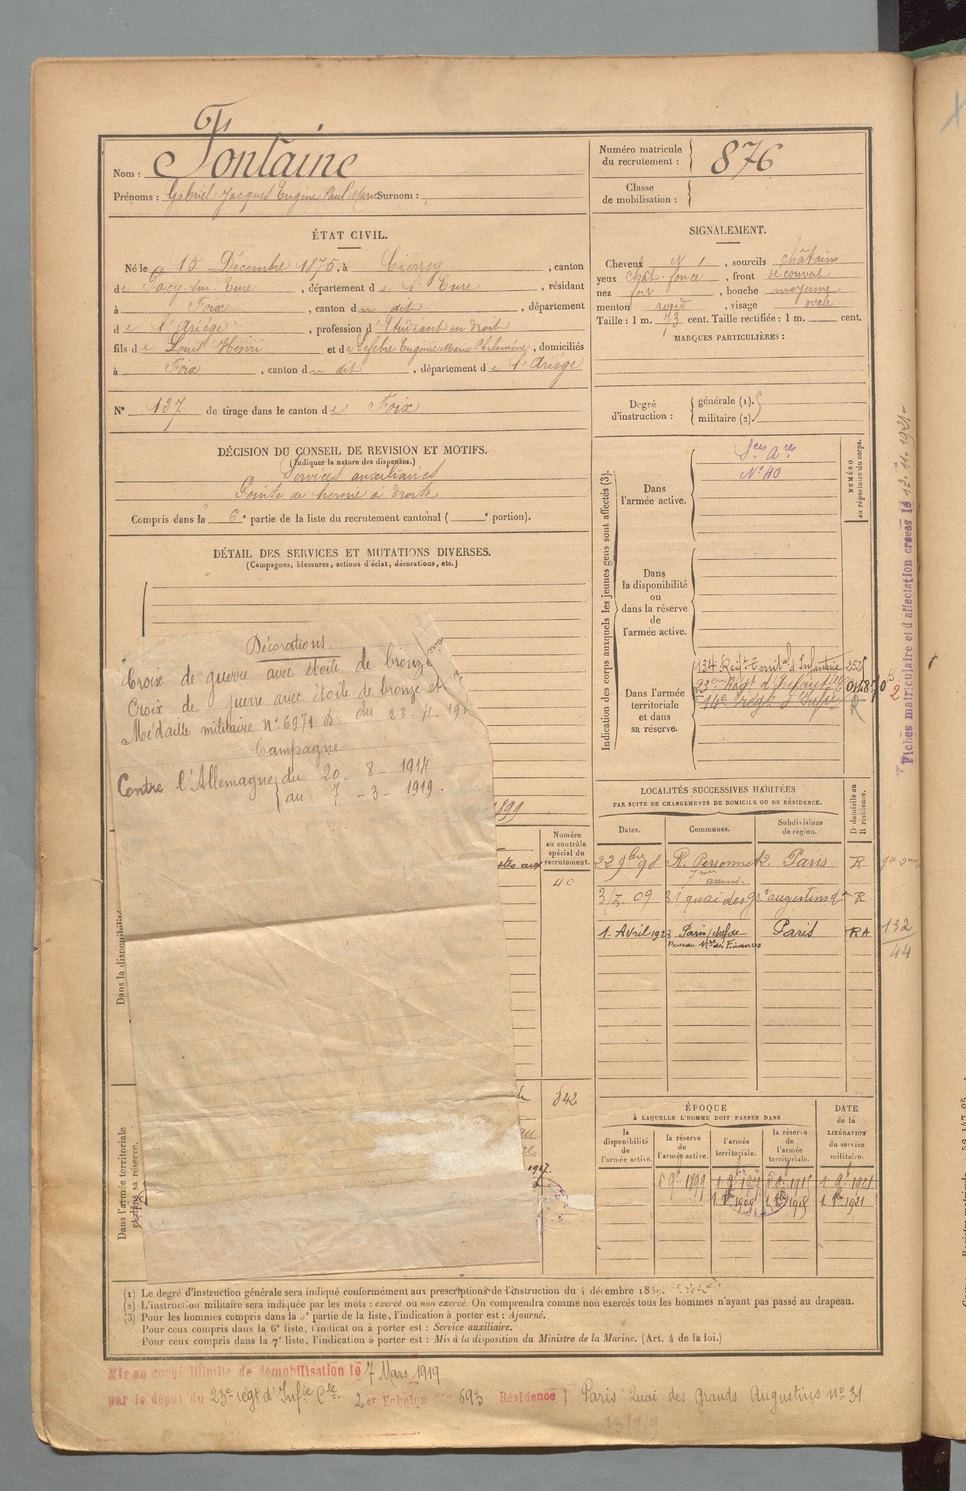 Nom : Fontaine
Prénoms : Gabriel Jacques Eugène Paul Marie Surnom :
Numéro matricule du recrutement : 876
Classe de mobilisation :
ÉTAT CIVIL.
Né le 15 Décembre 1875, à Cierrey, canton
de Pacy-sur-Eure, département de l'Eure, résidant
à Foix, canton du dit, département
de l'Ariège, profession d'Etudiant en droit
fils de Louis Henri et de Lefebre Eugénie Marie Philomène, domiciliés
à Foix, canton du dit, département de l'Ariège
N° 137 de tirage dans le canton de Foix
SIGNALEMENT.
Cheveux N, sourcils châtains
yeux chât. foncé, front découvert
nez fort, bouche moyenne
menton rond, visage ovale
Taille : 1 m. 73 cent. Taille rectifiée : 1 m. cent.
MARQUES PARTICULIÈRES :
Degré d'instruction : générale (1). militaire (2).
DÉCISION DU CONSEIL DE REVISION ET MOTIFS.
(Indiquer la nature des dispenses.)
Services auxiliaires
Pointe de hernie à droite
Compris dans la 6e partie de la liste du recrutement cantonal ( e portion).
DÉTAIL DES SERVICES ET MUTATIONS DIVERSES.
(Campagnes, blessures, actions d'éclat, décorations, etc.)
Décorations.
Croix de guerre avec étoile de bronze
Croix de guerre avec étoile de bronze et
Médaille militaire n° 6971 du 23-11-19
Campagne
Contre l'Allemagne du 20-8-1914
au 7-3-1919.
1899
Numéro au contrôle spécial du recrutement.
40
842
Dans la disponibilité
Dans l'armée territoriale et dans sa réserve.
Indication des corps auxquels les jeunes gens sont affectés (3).
NUMÉRO au répertoire du corps.
Dans l'armée active.
Sces Ares
N° 40
Dans la disponibilité ou dans la réserve de l'armée active.
Dans l'armée territoriale et dans sa réserve.
134 Regt Territal d'Infanterie
23eme Régt d'Infanterie
14e Régt d'Infie
Fiches matriculaire et d'affectation creees le 12-11-1921-
LOCALITÉS SUCCESSIVES HABITÉES
PAR SUITE DE CHANGEMENTS DE DOMICILE OU DE RÉSIDENCE.
Dates. Communes. Subdivisions de region. D domicile ou R résidence.
22 9bre 98 R. Perronnet 12 Paris R
7me arrond.
3/7. 09 31 quai des Gds augustins R
1. Avril 1923 Paris chef de Paris RA
Bureau Mre des Finances
132
44
ÉPOQUE
À LAQUELLE L'HOMME DOIT PASSER DANS
la disponibilité de l'armée active. la réserve de l'armée active. l'armée territoriale. la réserve de l'armée territoriale.
DATE de la LIBÉRATION du service militaire.
(1) Le degré d'instruction générale sera indiqué conformément aux prescriptions de l'instruction du 4 décembre 1889.
(2) L'instruction militaire sera indiquée par les mots : exercé ou non exercé. On comprendra comme non exercés tous les hommes n'ayant pas passé au drapeau.
(3) Pour les hommes compris dans la 5e partie de la liste, l'indication à porter est : Ajourné.
Pour ceux compris dans la 6e liste, l'indication à porter est : Service auxiliaire.
Pour ceux compris dans la 7e liste, l'indication à porter est : Mis à la disposition du Ministre de la Marine. (Art. 4 de la loi.)
Mis en congé illimité de démobilisation le 7 Mars 1919
par le dépôt du 23e régt d'Infie 2er Echelon 693 Résidence Paris Quai des Grands Augustins n° 31